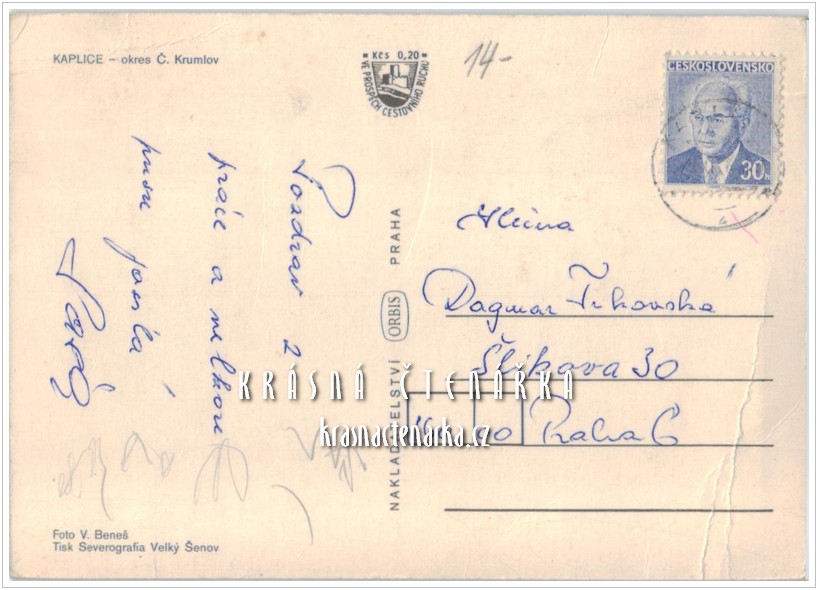 KAPLICE – okres Č. Krumlov
Kčs 0,20
VE PROSPĚCH CESTOVNÍHO RUCHU
14-
ČESKOSLOVENSKO
30
Pozdrav z
práce a
pusu
NAKLADATELSTVÍ ORBIS PRAHA
Dagmar
Šlikova 30
Praha 6
KRÁSNÁ ČTENÁŘKA
krasnactenarka.cz
Foto V. Beneš
Tisk Severografia Velký Šenov